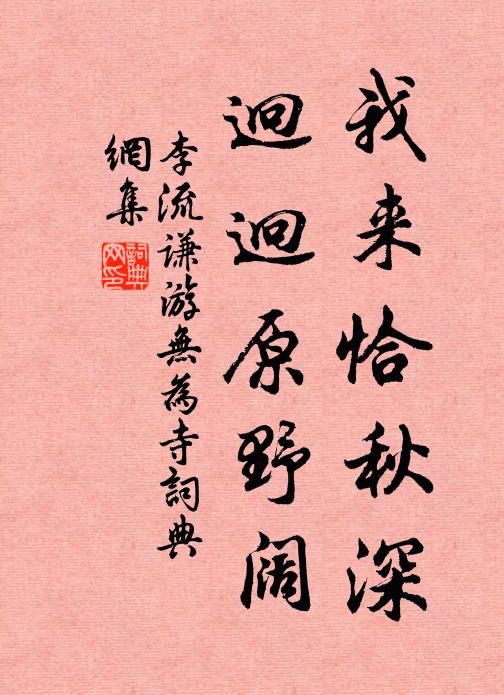 我来恰秋深
迥迥原野阔
李流谦游無為寺詞典
網集
詞典
网印